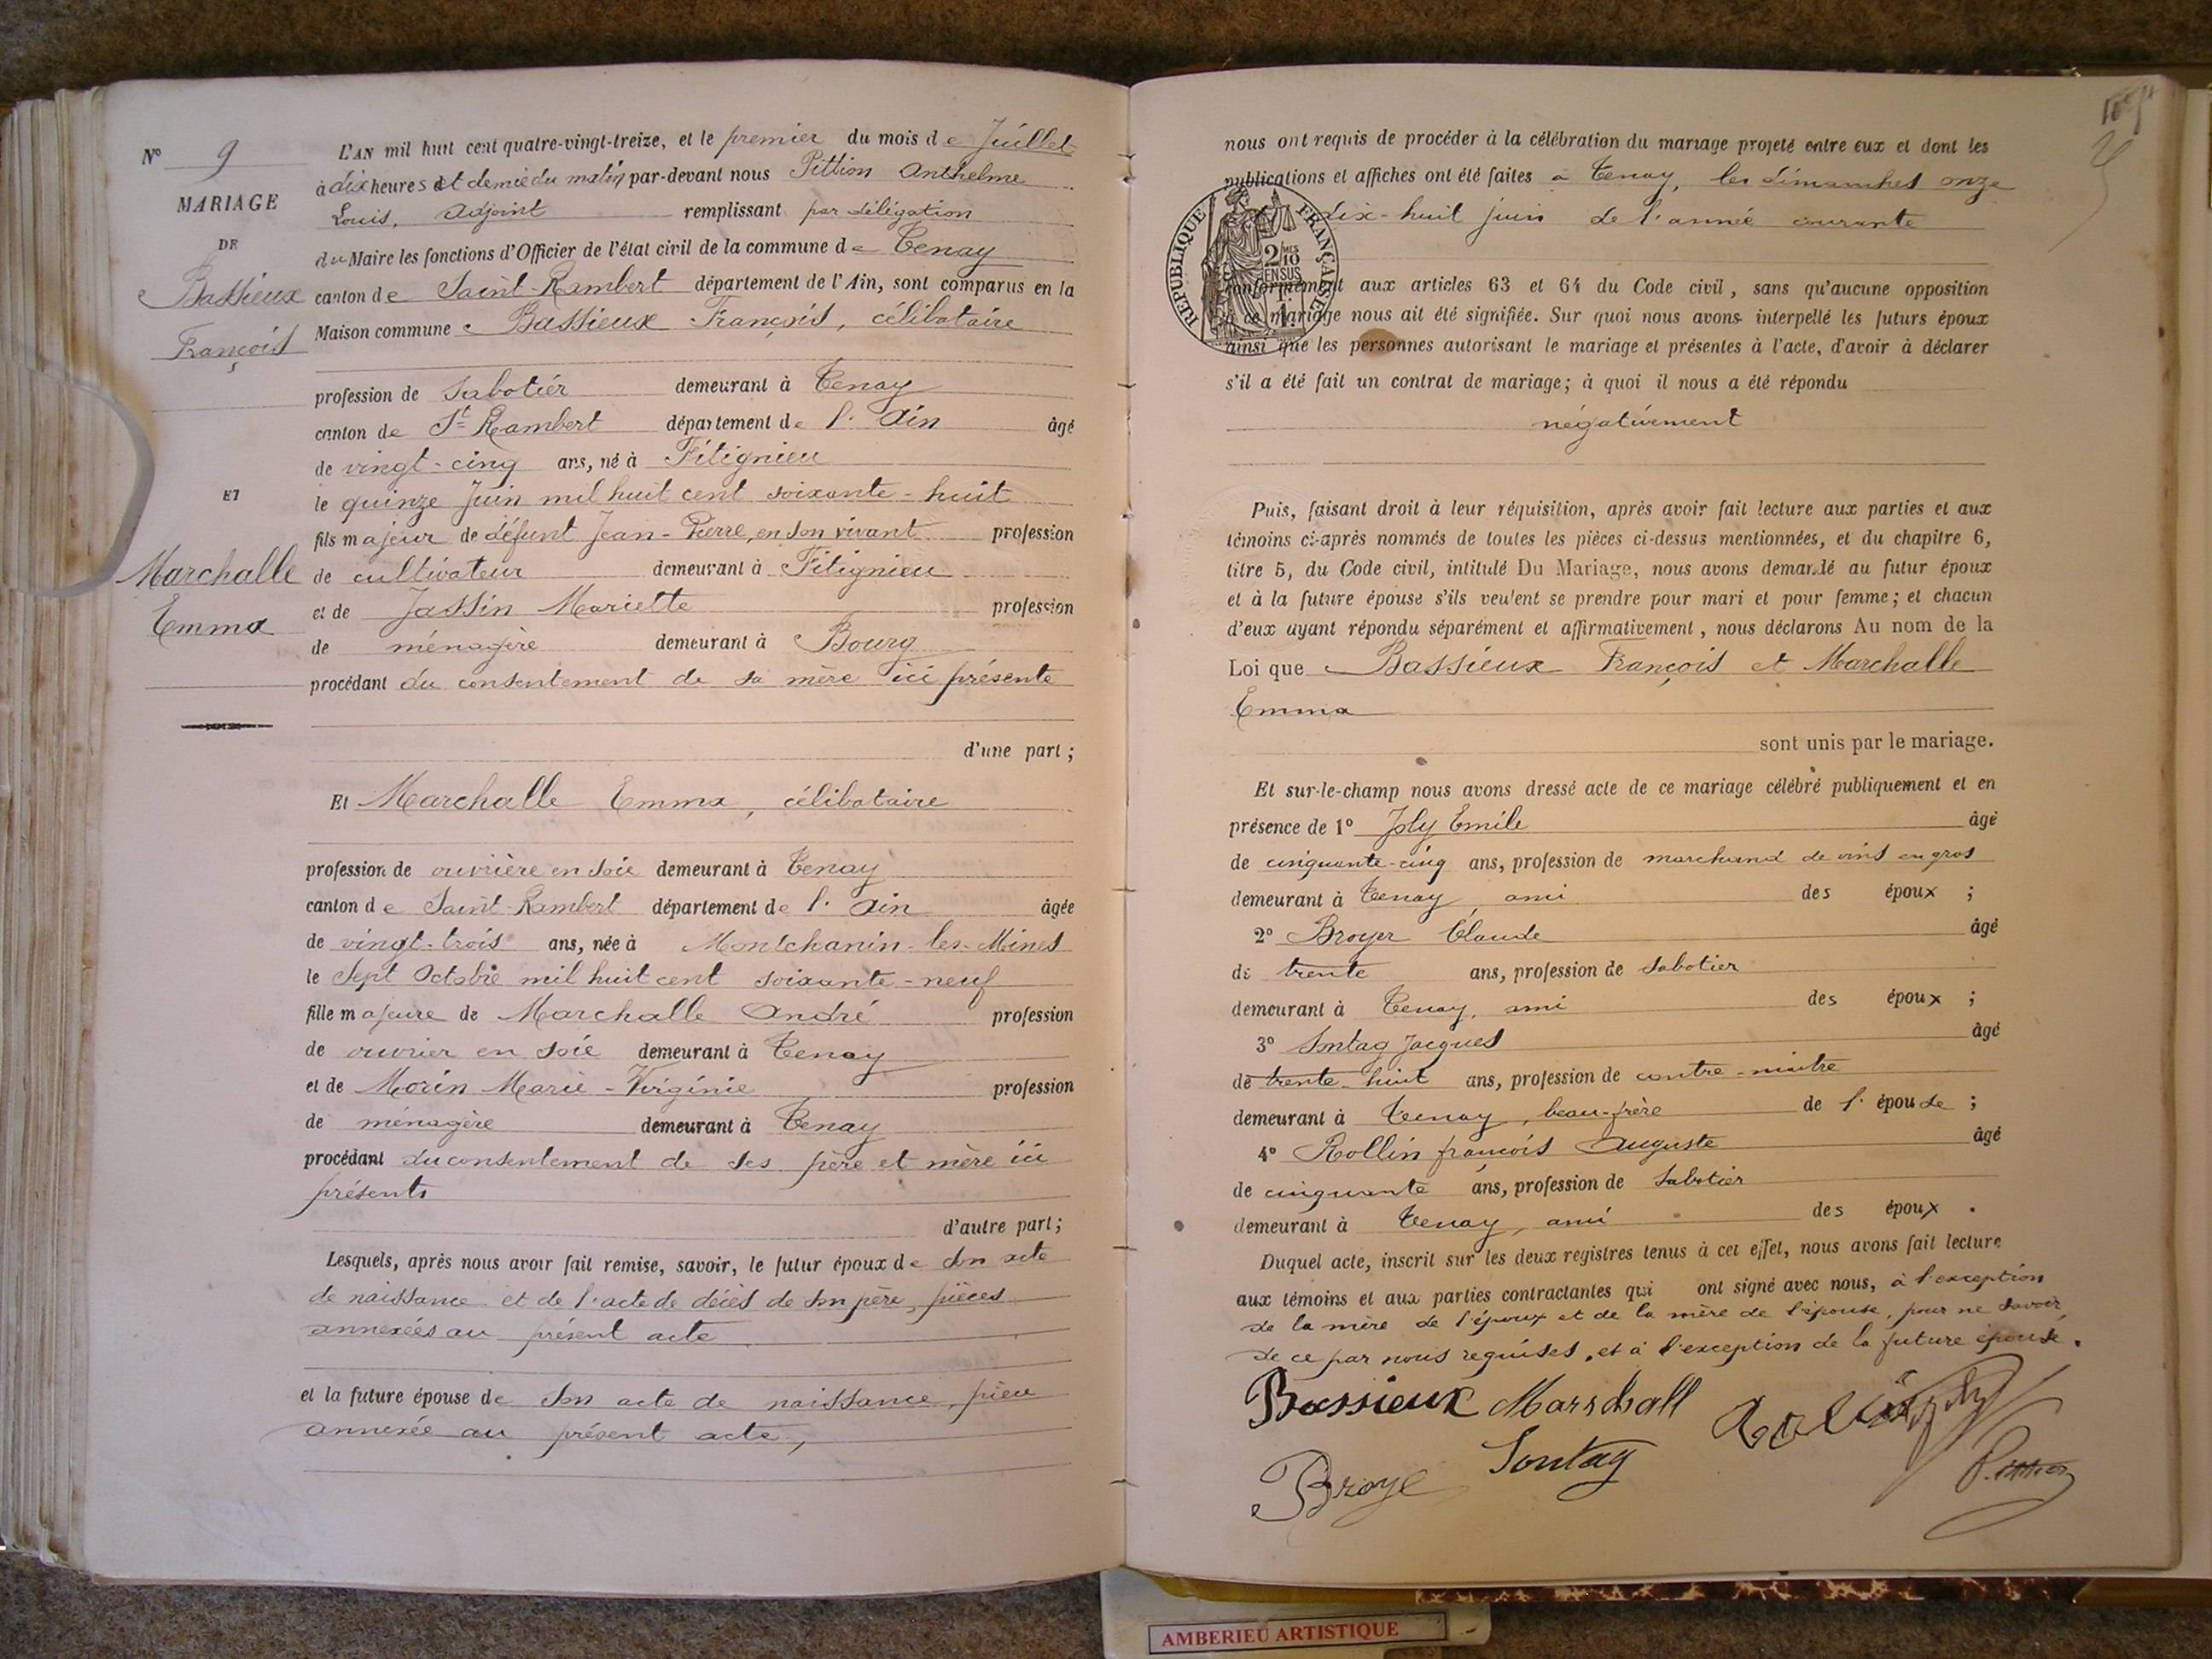 N° 9
MARIAGE
DE
Bassieux
François
ET
Marchalle
Emma
L'AN mil huit cent quatre-vingt-treize, et le premier du mois de Juillet
à dix heures et demie du matin par-devant nous Pittion Anthelme
Louis, adjoint remplissant par délégation
du Maire les fonctions d'Officier de l'état civil de la commune de Tenay
canton de Saint-Rambert département de l'Ain, sont comparus en la
Maison commune Bassieux François, célibataire
profession de sabotier demeurant à Tenay
canton de St Rambert département de l'Ain âgé
de vingt-cinq ans, né à Fitignieu
le quinze Juin mil huit cent soixante-huit
fils majeur de défunt Jean-Pierre, en son vivant profession
de cultivateur demeurant à Fitignieu
et de Jassin Mariette profession
de ménagère demeurant à Bourg
procédant du consentement de sa mère ici présente
d'une part ;
Et Marchalle Emma, célibataire
profession de ouvrière en soie demeurant à Tenay
canton de Saint-Rambert département de l'Ain âgée
de vingt-trois ans, née à Montchanin-les-Mines
le sept Octobre mil huit cent soixante-neuf
fille majeure de Marchalle André profession
de ouvrier en soie demeurant à Tenay
et de Morin Marie-Virginie profession
de ménagère demeurant à Tenay
procédant du consentement de ses père et mère ici
présents
d'autre part ;
Lesquels, après nous avoir fait remise, savoir, le futur époux de son acte
de naissance et de l'acte de décès de son père, pièces
annexées au présent acte
et la future épouse de son acte de naissance, pièce
annexée au présent acte,
nous ont requis de procéder à la célébration du mariage projeté entre eux et dont les
publications et affiches ont été faites à Tenay, les dimanches onze
dix-huit juin de l'année courante
RÉPUBLIQUE FRANÇAISE
2/10 MES
EN SUS
conformément aux articles 63 et 64 du Code civil, sans qu'aucune opposition
à ce mariage nous ait été signifiée. Sur quoi nous avons interpellé les futurs époux
ainsi que les personnes autorisant le mariage et présentes à l'acte, d'avoir à déclarer
s'il a été fait un contrat de mariage; à quoi il nous a été répondu
négativement
Puis, faisant droit à leur réquisition, après avoir fait lecture aux parties et aux
témoins ci-après nommés de toutes les pièces ci-dessus mentionnées, et du chapitre 6,
titre 5, du Code civil, intitulé Du Mariage, nous avons demandé au futur époux
et à la future épouse s'ils veulent se prendre pour mari et pour femme ; et chacun
d'eux ayant répondu séparément et affirmativement, nous déclarons Au nom de la
Loi que Bassieux François et Marchalle
Emma
sont unis par le mariage.
Et sur-le-champ nous avons dressé acte de ce mariage célébré publiquement et en
présence de 1° Joly Emile âgé
de cinquante-cinq ans, profession de marchand de vins en gros
demeurant à Tenay, ami des époux ;
2° Broyer Claude âgé
de trente ans, profession de sabotier
demeurant à Tenay, ami des époux ;
3° Sontag Jacques âgé
de trente-huit ans, profession de contre-maitre
demeurant à Tenay, beau-frère de l'épouse ;
4° Rollin françois Auguste âgé
de cinquante ans, profession de sabotier
demeurant à Tenay, ami des époux .
Duquel acte, inscrit sur les deux registres tenus à cet effet, nous avons fait lecture
aux témoins et aux parties contractantes qui ont signé avec nous, à l'exception
de la mère de l'époux et de la mère de l'épouse, pour ne savoir
de ce par nous requises, et à l'exception de la future épouse.
Bassieux Marschall
Broye Sontag Pittion
AMBERIEU ARTISTIQUE